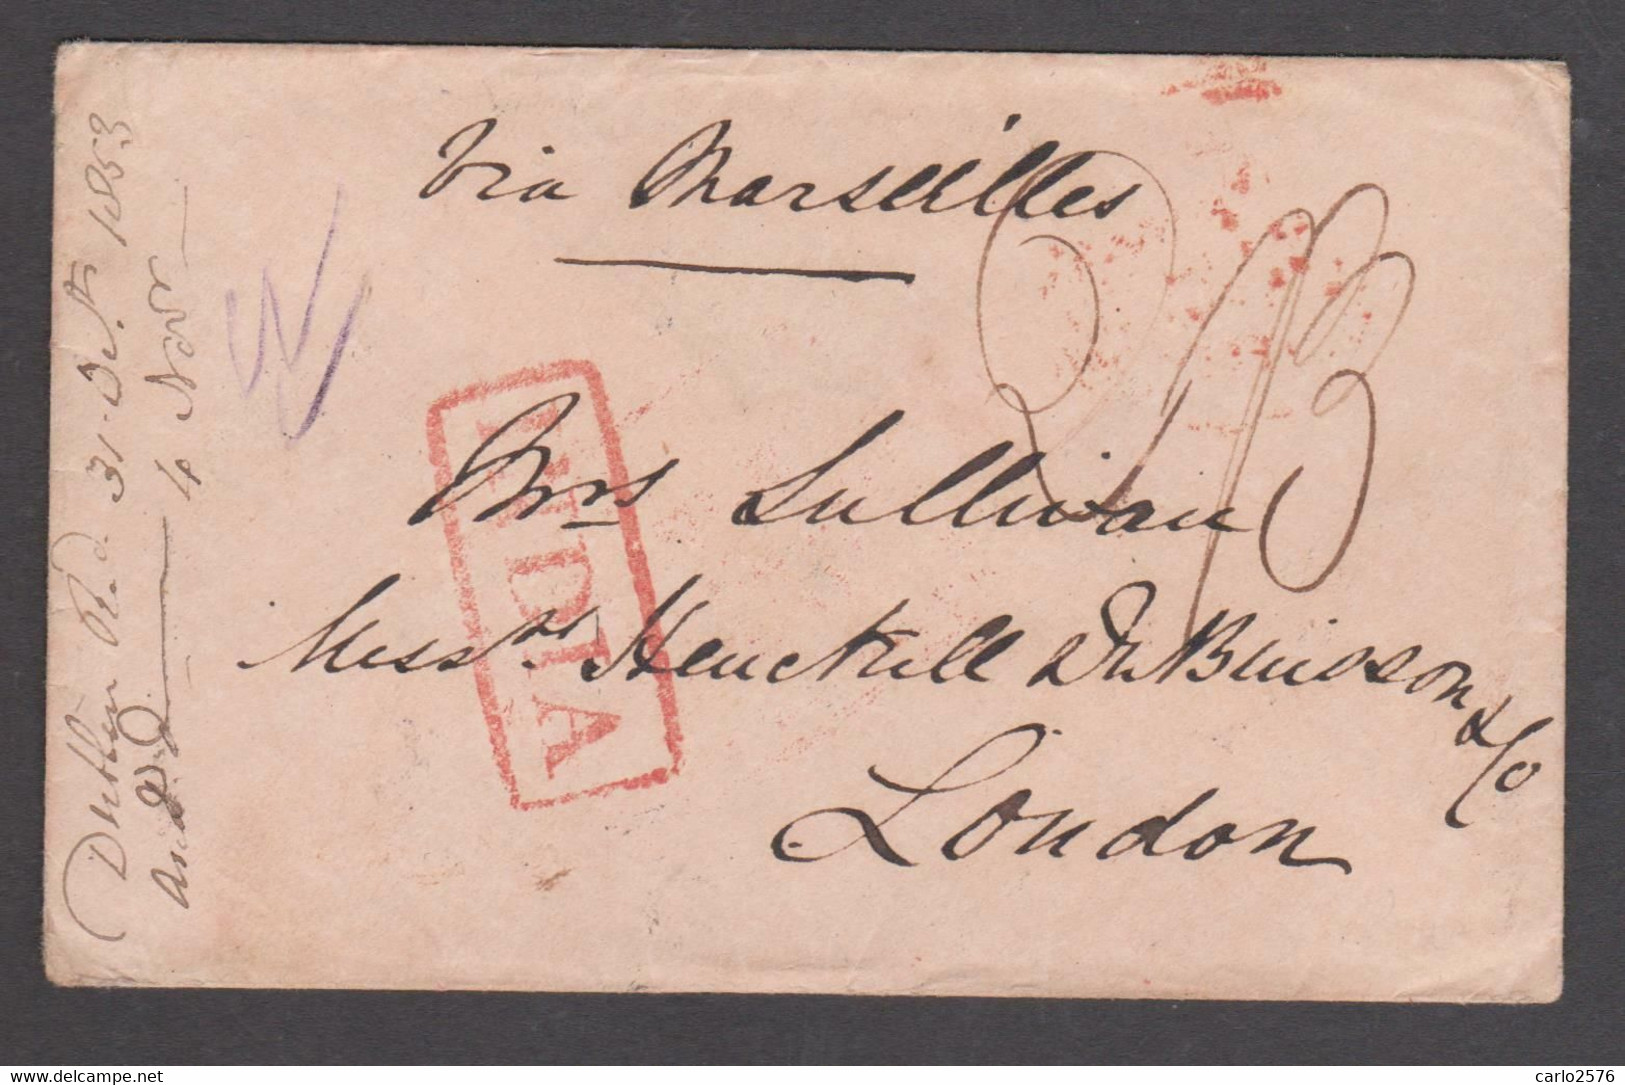 Via Marseilles
Mrs Sullivan
Messrs Henckell Du Buisson
& Co
London
INDIA
Rd 31 Oct 1853
4 Novr
delcampe.net
carlo2576